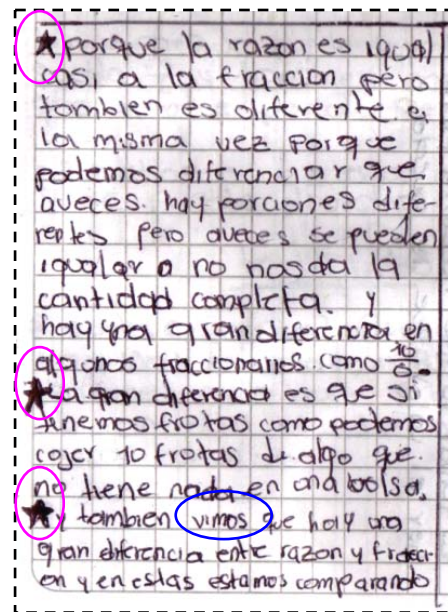 ★ porque la razon es igual
casi a la fraccion pero
tombien es diferente a
la misma vez porque
podemos diferenciar que
aveces. hay porciones dife-
rentes pero aveces se pueden
igualar o no nos da la
cantidad completa. y
hay una gran diferencia en
algonos fraccionarios como 10/0.
★ La gran diferencia es que si
tinemos frotas como podemos
cojer 10 frotas de algo que.
no tiene nada en ona bolsa.
★ y tambien vimos que hay una
gran diferencia entre razon y fracci-
on y en estas estamos comparando